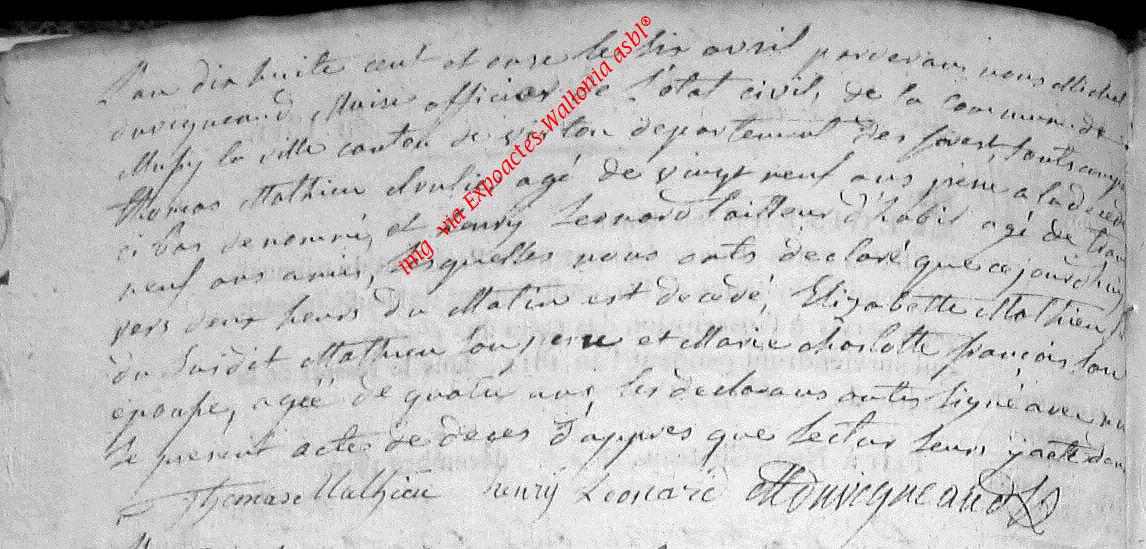 L'an dix huite cent et onse le six avril pardevans nous Michel
duvigneaud Maire officier de l'état civil de la commune de
Mussy la ville canton de virton departement des forest, sonts comparu
thomas Mathieu agé de vingt neuf ans pere a la decedé
ci bas denommé, et henry Leonard tailleur d'habit agé de trente
neuf ans amis, lesquelles nous onts declaré que ce jourd'huy
vers deux heurs du Matin est decedé Elizabette Mathieu
du Susdit Mathieu son pere et Marie charlotte françois son
epouse, agée de quatre ans, les declarans onts signé avec nous
le present acte de deces d'appres que lectur leurs y acte donné
Thomas Mathieu henry Leonard MDuvigneaud
img via Expoactes-Wallonia asbl®